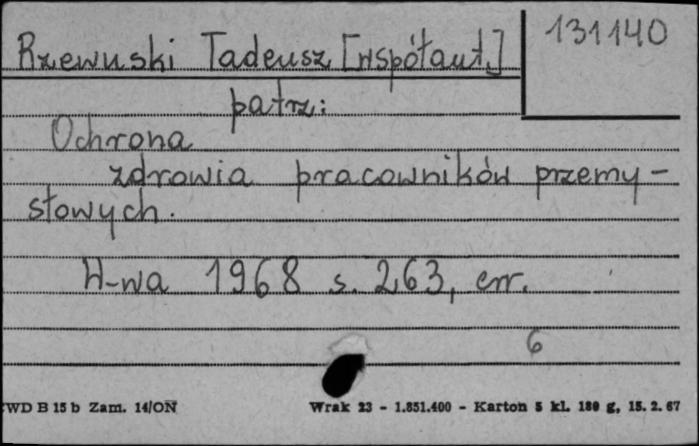 131140
Rzewuski Tadeusz [współaut.]
patrz:
Ochrona
zdrowia pracowników przemy-
słowych.
W-wa 1968 s. 263, err.
6
CWD B 15 b Zam. 14/ON Wrak 23 - 1.851.400 - Karton 5 kl. 180 g, 15. 2. 67